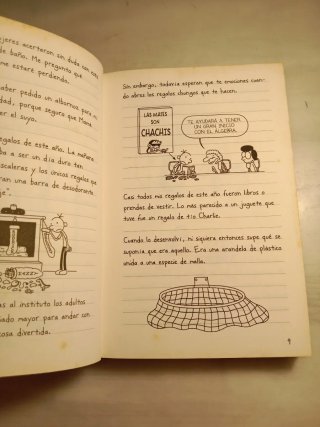 ejeres acertaron sin duda con esto
de baño. Me pregunto qué
estaré perdiendo.
haber pedido un albornoz para mi
dad, porque seguro que Mamá
er el suyo.
regalos de este año. La mañana
a ser un día duro ten
scaleras y los únicos regalos que
ran una barra de desodorante
je".
as al instituto los adultos
iado mayor para andar son
cosa divertida.
Sin embargo, todavía esperan que te emociones cuan-
do abres los regalos chungos que te hacen.
LAS MATES
SON
CHACHIS
TE AYUDARÁ A TENER
UN GRAN INICIO
CON EL ÁLGEBRA.
Casi todos mis regalos de este año fueron libros o
prendas de vestir. Lo más parecido a un juguete que
tuve fue un regalo de tío Charlie.
Cuando lo desenvolví, ni siquiera entonces supe qué se
suponía que era aquello. Era una arandela de plástico
unida a una especie de malla.
9